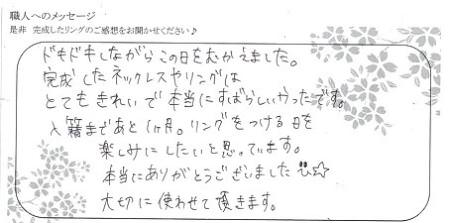 職人へのメッセージ
是非 完成したリングのご感想をお聞かせください♪
ドキドキしながらこの日をむかえました。
完成したネックレスやリングは
とてもきれいで本当にすばらしいかったです。
入籍まであと1ヶ月。リングをつける日を
楽しみにしたいと思っています。
本当にありがとうございました
大切に使わせて頂きます。